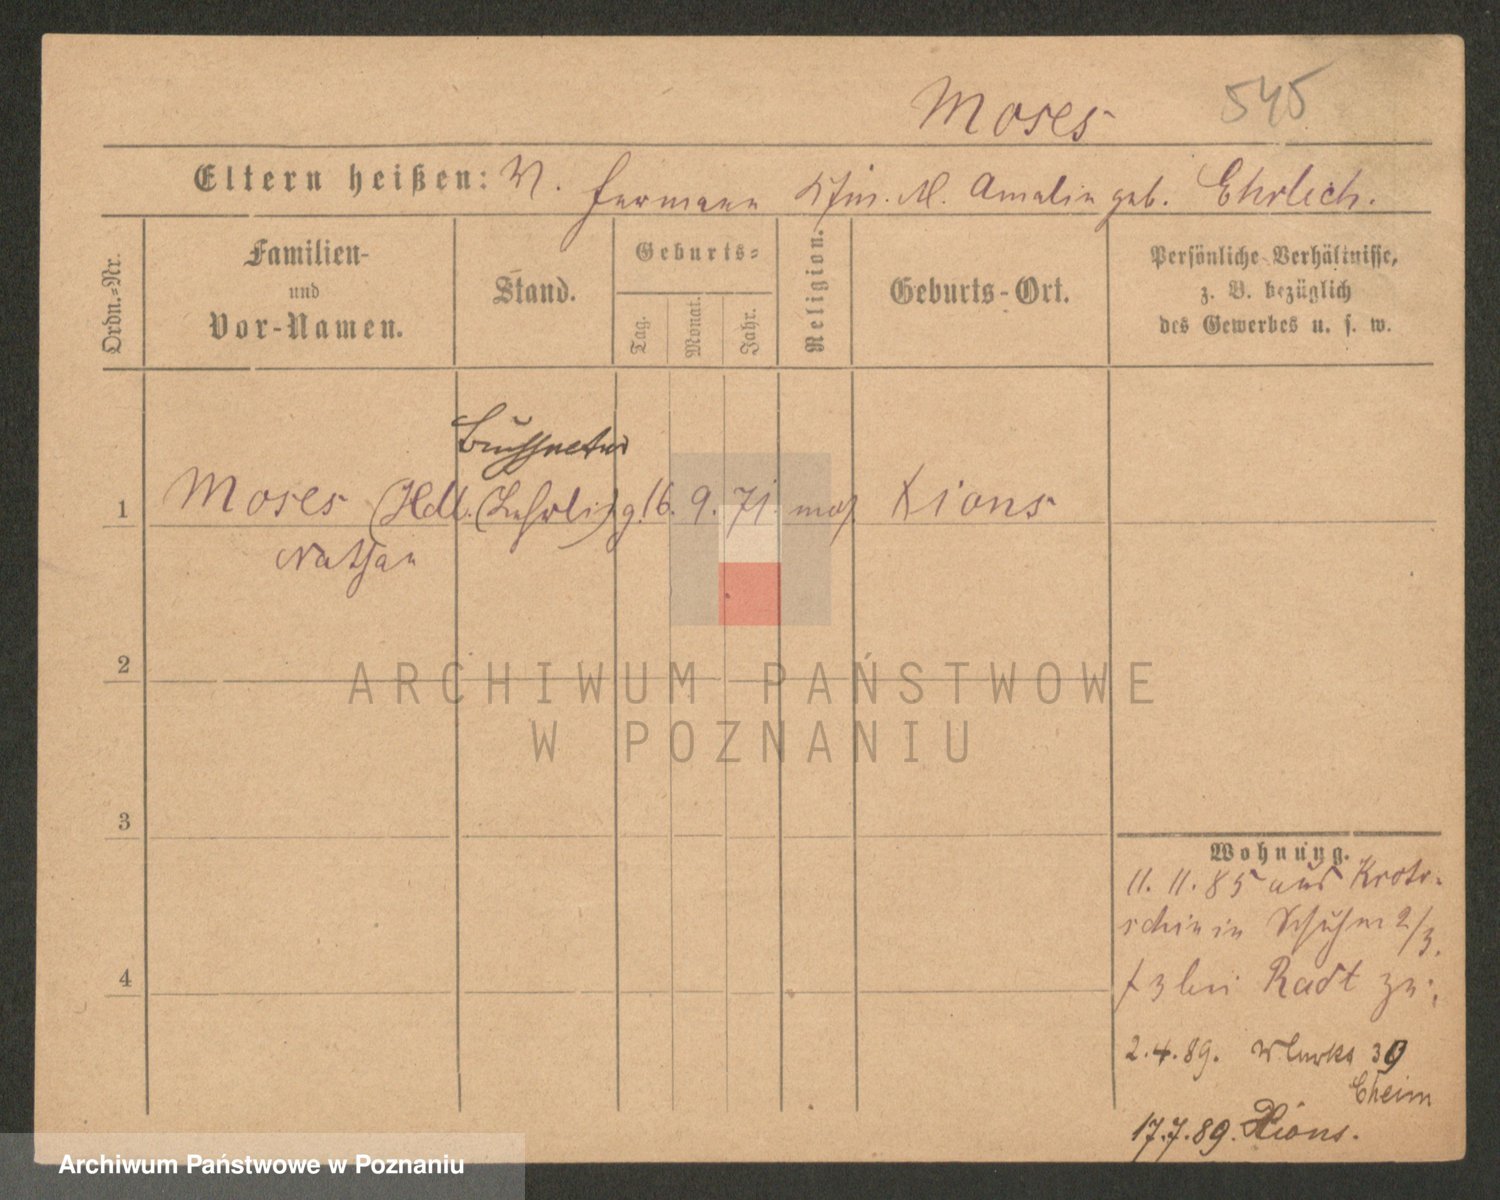 Moses 545
Eltern heißen: V. Hermann Kfm. M. Amalie geb. Ehrlich.
Ordn.-Nr.
Familien-
und
Vor-Namen.
Stand.
Geburts-
Tag.
Monat.
Jahr.
Religion.
Geburts-Ort.
Persönliche Verhältnisse,
z. B. bezüglich
des Gewerbes u. s. w.
1 Moses (Hdl. (Lehrling) 16. 9. 71. mos Xions
Nathan
2
3
4
Wohnung.
11. 11. 85 aus Kroto-
schin in Schuhm 2/3.
bei Radt zu;
2. 4. 89. 39
Cheim
17. 7. 89. Xions.
ARCHIWUM PAŃSTWOWE
W POZNANIU
Archiwum Państwowe w Poznaniu